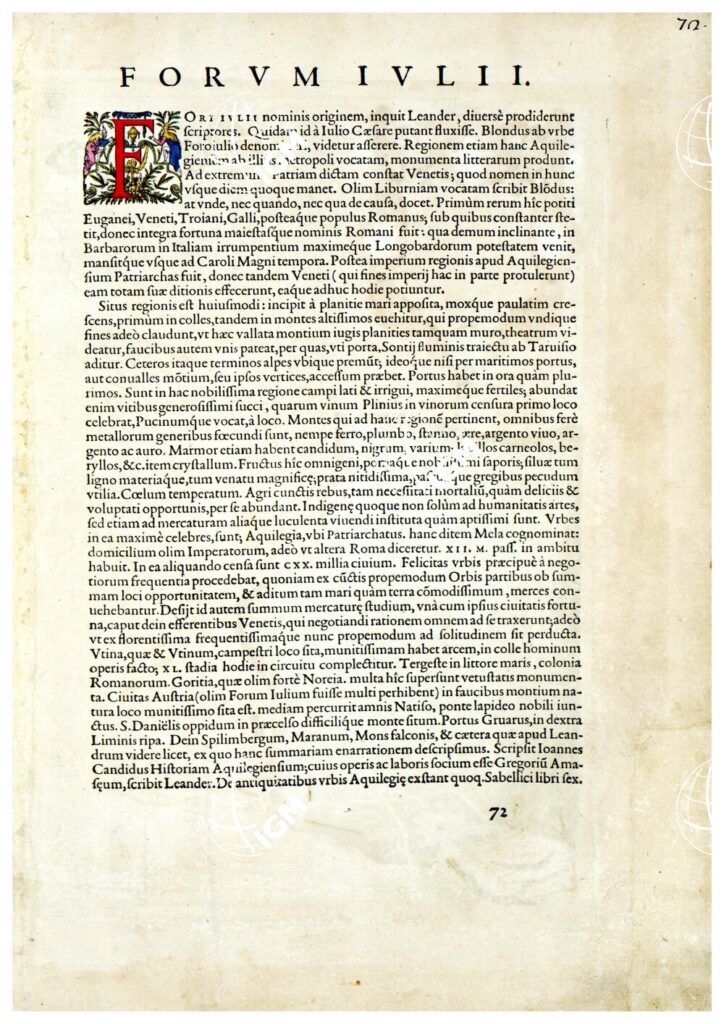 72.
FORVM IVLII.
FORI IVLII nominis originem, inquit Leander, diuersè prodiderunt
scriptores. Quidam id à Iulio Cæsare putant fluxisse. Blondus ab vrbe
Foroiulio videtur asserere. Regionem etiam hanc Aquile-
giensem ab illius metropoli vocatam, monumenta litterarum produnt.
Ad extremum Patriam dictam constat Venetis; quod nomen in hunc
vsque diem quoque manet. Olim Liburniam vocatam scribit Blõdus:
at vnde, nec quando, nec qua de causa, docet. Primùm rerum hîc potiti
Euganei, Veneti, Troiani, Galli, posteaque populus Romanus; sub quibus constanter ste-
tit, donec integra fortuna maiestasque nominis Romani fuit: qua demum inclinante, in
Barbarorum in Italiam irrumpentium maximeque Longobardorum potestatem venit,
mansitque vsque ad Caroli Magni tempora. Postea imperium regionis apud Aquilegien-
sium Patriarchas fuit, donec tandem Veneti (qui fines imperij hac in parte protulerunt)
eam totam suæ ditionis effecerunt, eaque adhuc hodie potiuntur.
Situs regionis est huiusmodi: incipit à planitie mari apposita, moxque paulatim cre-
scens, primùm in colles, tandem in montes altissimos euehitur, qui propemodum vndique
fines adeò claudunt, vt hæc vallata montium iugis planities tamquam muro, theatrum vi-
deatur, faucibus autem vnis pateat, per quas, vti porta, Sontij fluminis traiectu ab Taruisio
aditur. Ceteros itaque terminos alpes vbique premũt; ideoq́ue nisi per maritimos portus,
aut conualles mõtium, seu ipsos vertices, accessum præbet. Portus habet in ora quàm plu-
rimos. Sunt in hac nobilissima regione campi lati & irrigui, maximeque fertiles; abundat
enim vitibus generosissimi succi, quarum vinum Plinius in vinorum censura primo loco
celebrat, Pucinumque vocat, à loco. Montes qui ad hanc regionẽ pertinent, omnibus ferè
metallorum generibus fœcundi sunt, nempe ferro, plumbo, stanno, ære, argento viuo, ar-
gento ac auro. Marmor etiam habent candidum, nigrum, varium: carneolos, be-
ryllos, &c. item crystallum. Fructus hîc omnigeni, saporis; siluæ tum
ligno materiaque, tum venatu magnificę, prata nitidissima, gregibus pecudum
vtilia. Cœlum temperatum. Agri cunctis rebus, tam necessitati mortaliũ, quàm deliciis &
voluptati opportunis, per se abundant. Indigenę quoque non solùm ad humanitatis artes,
sed etiam ad mercaturam aliaque luculenta viuendi instituta quàm aptissimi sunt. Vrbes
in ea maximè celebres, sunt; Aquilegia, vbi Patriarchatus. hanc ditem Mela cognominat:
domicilium olim Imperatorum, adeò vt altera Roma diceretur. XII. M. pass. in ambitu
habuit. In ea aliquando censa sunt CXX. millia ciuium. Felicitas vrbis præcipuè à nego-
tiorum frequentia procedebat, quoniam ex cũctis propemodum Orbis partibus ob sum-
mam loci opportunitatem, & aditum tam mari quàm terra cõmodissimum, merces con-
uehebantur. Desijt id autem summum mercaturę studium, vnà cum ipsius ciuitatis fortu-
na, caput dein efferentibus Venetis, qui negotiandi rationem omnem ad se traxerunt; adeò
vt ex florentissima frequentissimaque nunc propemodum ad solitudinem sit perducta.
Vtina, quæ & Vtinum, campestri loco sita, munitissimam habet arcem, in colle hominum
operis facto; XL. stadia hodie in circuitu complectitur. Tergeste in littore maris, colonia
Romanorum. Goritia, quæ olim fortè Noreia. multa hîc supersunt vetustatis monumen-
ta. Ciuitas Austria (olim Forum Iulium fuisse multi perhibent) in faucibus montium na-
tura loco munitissimo sita est. mediam percurrit amnis Natiso, ponte lapideo nobili iun-
ctus. S. Daniëlis oppidum in præcelso difficiliq́ue monte situm. Portus Gruarus, in dextra
Liminis ripa. Dein Spilimbergum, Maranum, Mons falconis, & cætera quæ apud Lean-
drum videre licet, ex quo hanc summariam enarrationem descripsimus. Scripsit Ioannes
Candidus Historiam Aquilegiensium; cuius operis ac laboris socium esse Gregoriũ Ama-
sęum, scribit Leander. De antiquitatibus vrbis Aquilegię exstant quoq. Sabellici libri sex.
72
IGM